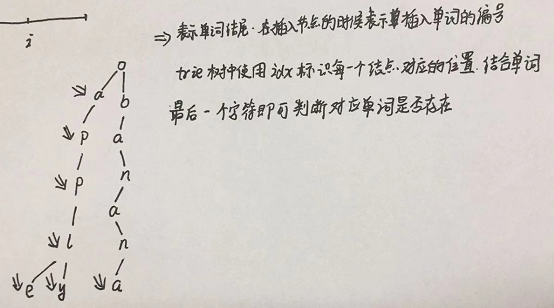 i
⇒ 表示单词结尾. 在插入节点的时候表示单插入单词的编号
trie 树中使用 idx 标识每一个结点对应的位置. 结合单词
最后一个字符即可判断对应单词是否存在
o
a b
p a
p n
l a
n
e y a